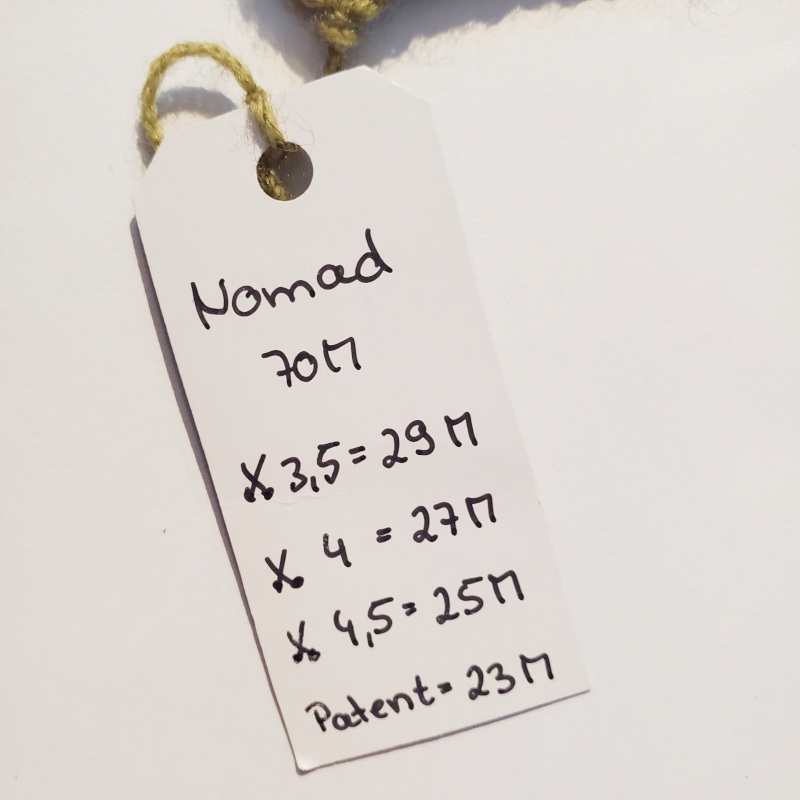 Nomad
70M
X 3,5 = 29 M
X 4 = 27M
X 4,5 = 25M
Patent = 23 M